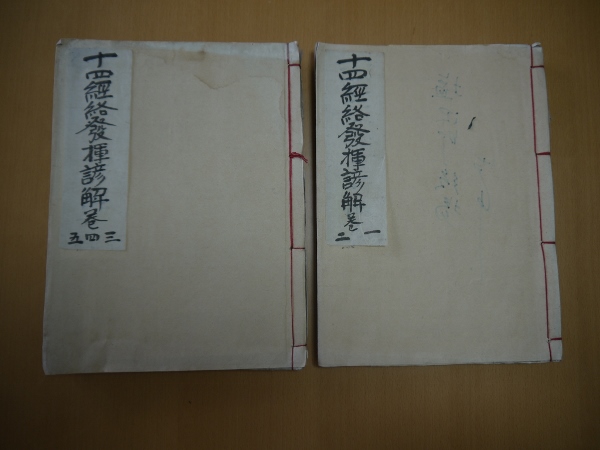 十四經絡發揮諺解卷
一
二
十四經絡發揮諺解卷
三
四
五